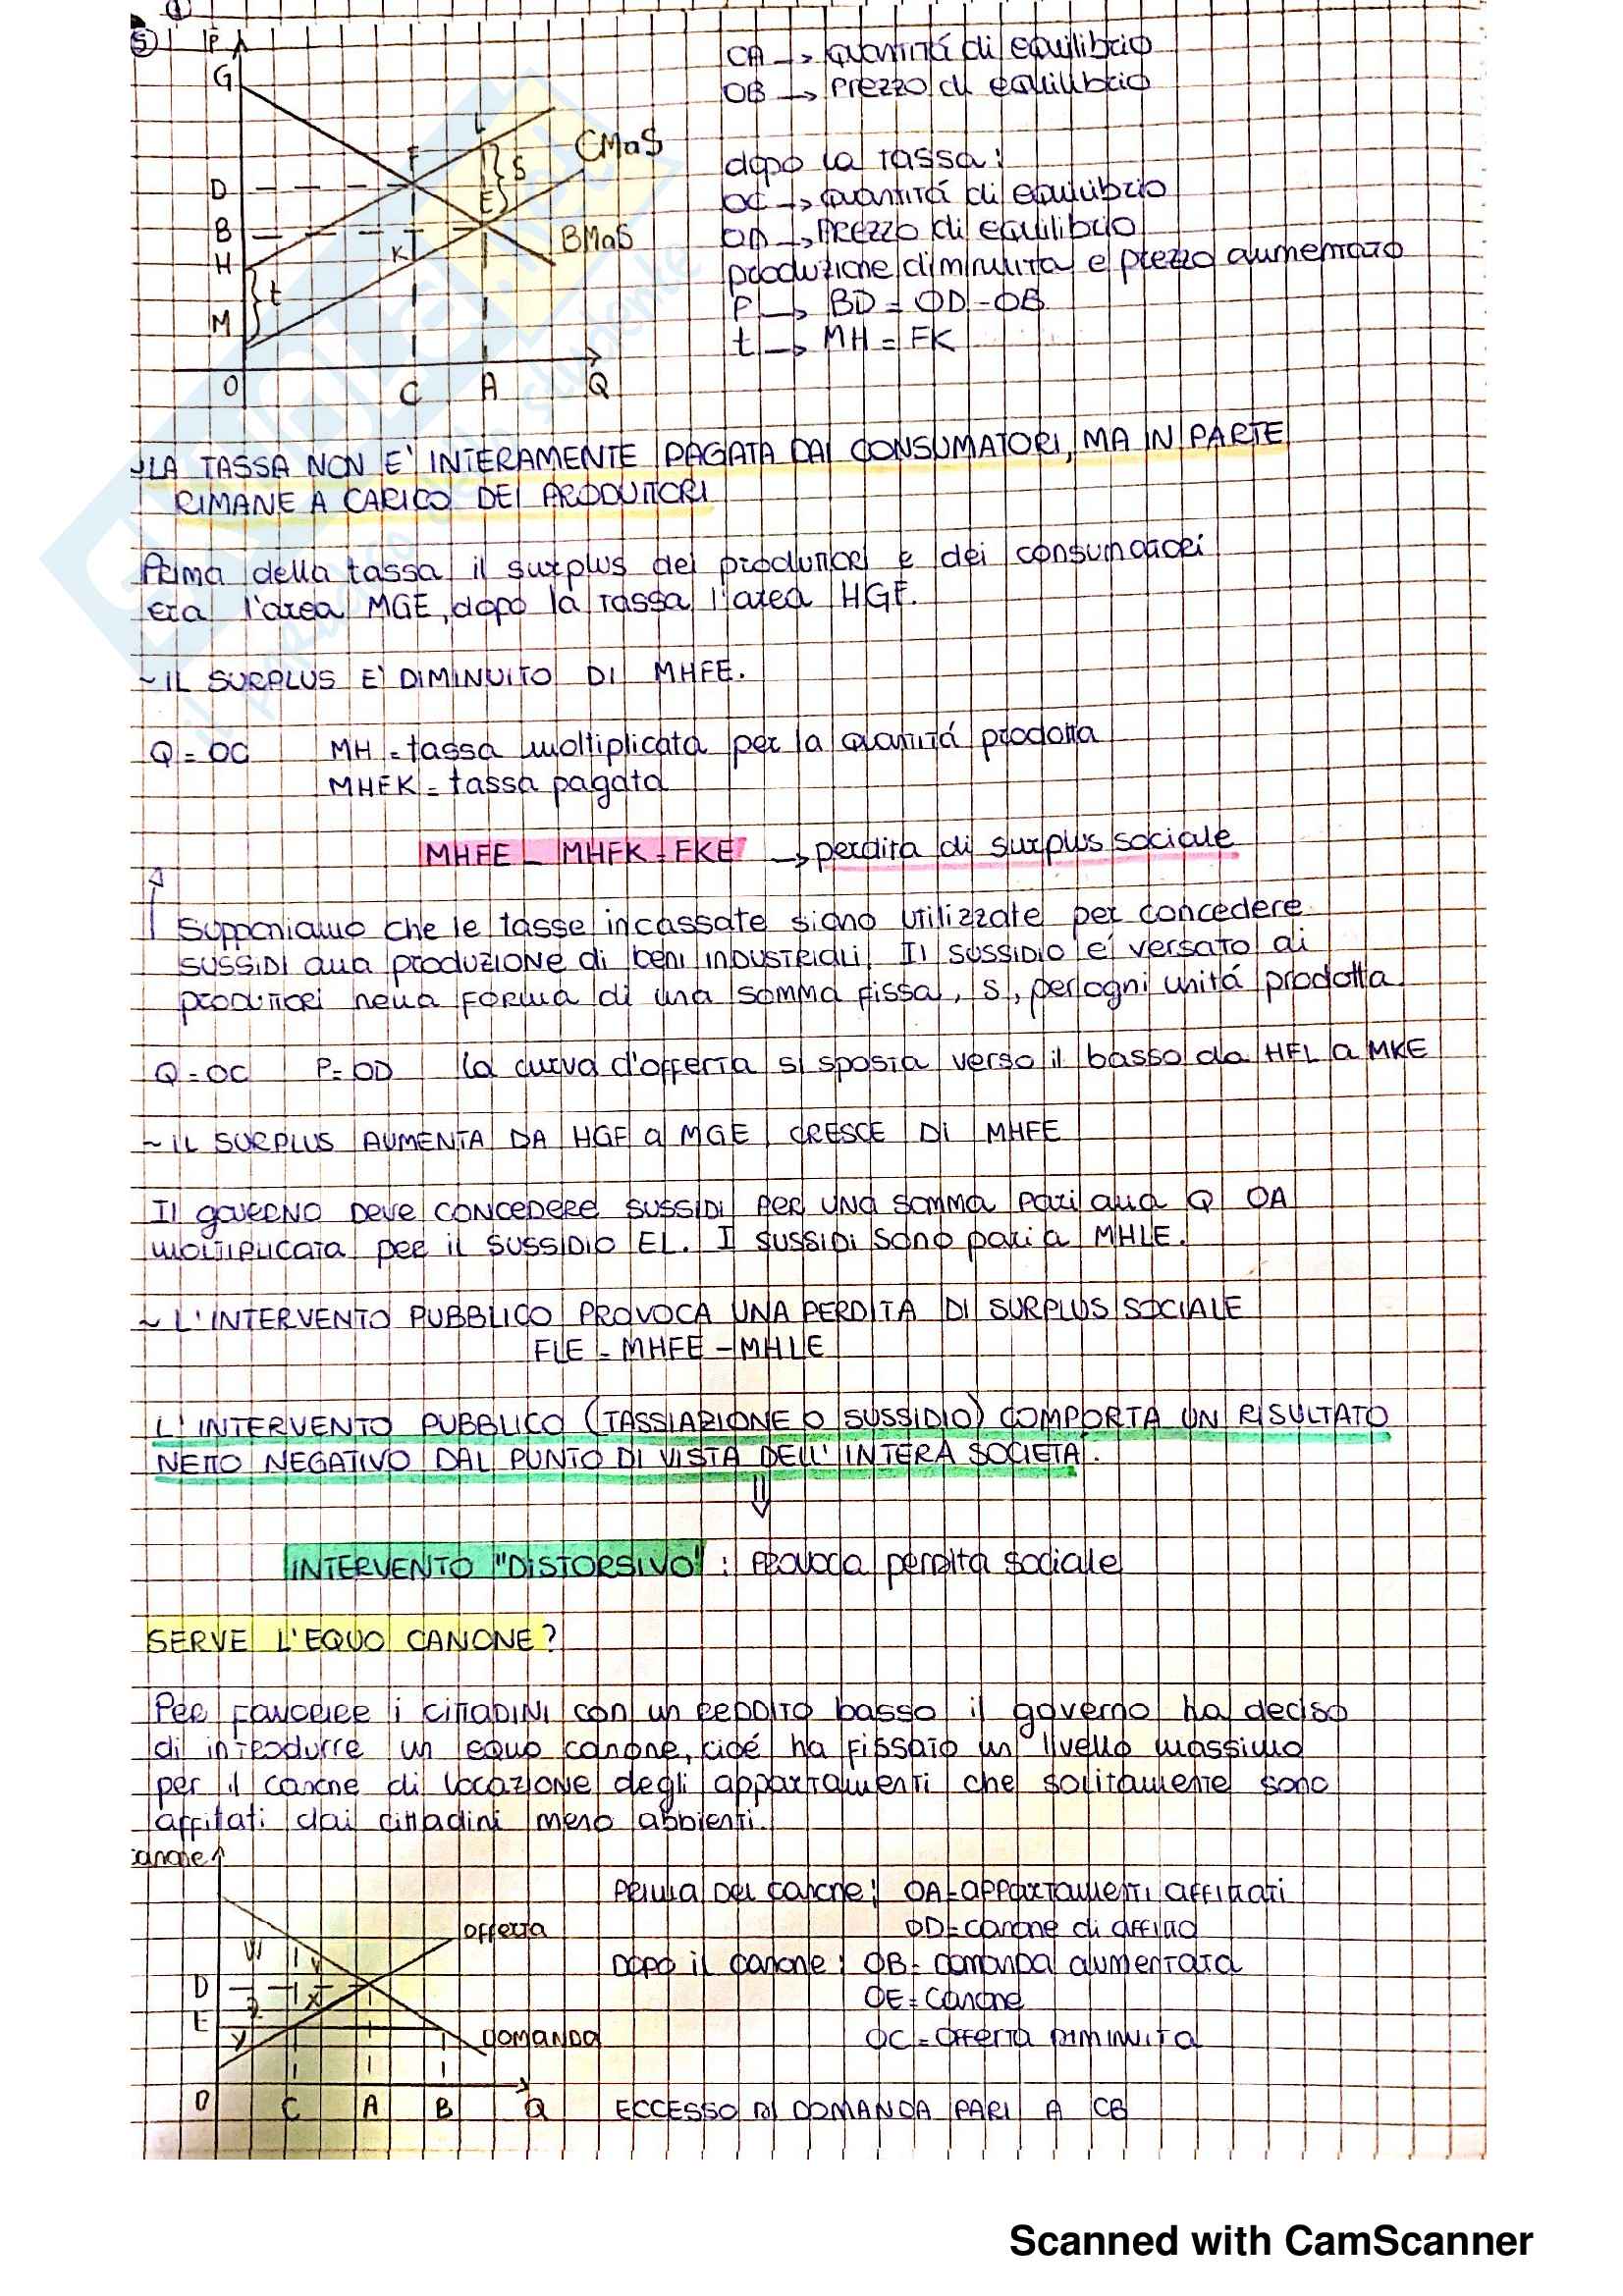 5
P
G
D
B
H
t
M
O
F
L
S
E
K
CMaS
BMaS
C
A
Q
OA → quantitá di equilibrio
OB → prezzo di equilibrio
dopo la tassa:
OC → quantitá di equilibrio
OD → prezzo di equilibrio
produzione diminuita e prezzo aumentato
P → BD = OD - OB
t → MH = FK
~ LA TASSA NON E' INTERAMENTE PAGATA DAI CONSUMATORI, MA IN PARTE
RIMANE A CARICO DEI PRODUTTORI
Prima della tassa il surplus dei produttori e dei consumatori
era l'area MGE, dopo la tassa l'area HGF.
~ IL SURPLUS E' DIMINUITO DI MHFE.
Q = OC MH = tassa moltiplicata per la quantitá prodotta
MHFK = tassa pagata
MHFE - MHFK = FKE → perdita di surplus sociale
Supponiamo che le tasse incassate siano utilizzate per concedere
SUSSIDI alla produzione di beni industriali. Il sussidio é versato ai
produttori nella forma di una somma fissa, S, per ogni unitá prodotta
Q = OC P = OD la curva d'offerta si sposta verso il basso da HFL a MKE
~ IL SURPLUS AUMENTA DA HGF a MGE CRESCE DI MHFE
Il governo deve concedere sussidi per una somma pari alla Q OA
moltiplicata per il sussidio EL. I sussidi sono pari a MHLE.
~ L'INTERVENTO PUBBLICO PROVOCA UNA PERDITA DI SURPLUS SOCIALE
FLE = MHFE - MHLE
L'INTERVENTO PUBBLICO (TASSIAZIONE O SUSSIDIO) COMPORTA UN RISULTATO
NETTO NEGATIVO DAL PUNTO DI VISTA DELL'INTERA SOCIETÁ.
INTERVENTO "DISTORSIVO": provoca perdita sociale
SERVE L'EQUO CANONE?
Per favorire i cittadini con un reddito basso il governo ha deciso
di introdurre un equo canone, cioé ha fissato un livello massimo
per il canone di locazione degli appartamenti che solitamente sono
affitati dai cittadini meno abbienti.
canone
W
V
D
X
Z
E
Y
offerta
DOMANDA
O
C
A
B
Q
Prima del canone: OA = appartamenti affittati
OD = canone di affitto
Dopo il canone: OB = domanda aumentata
OE = canone
OC = offerta diminuita
ECCESSO DI DOMANDA PARI A CB
Scanned with CamScanner